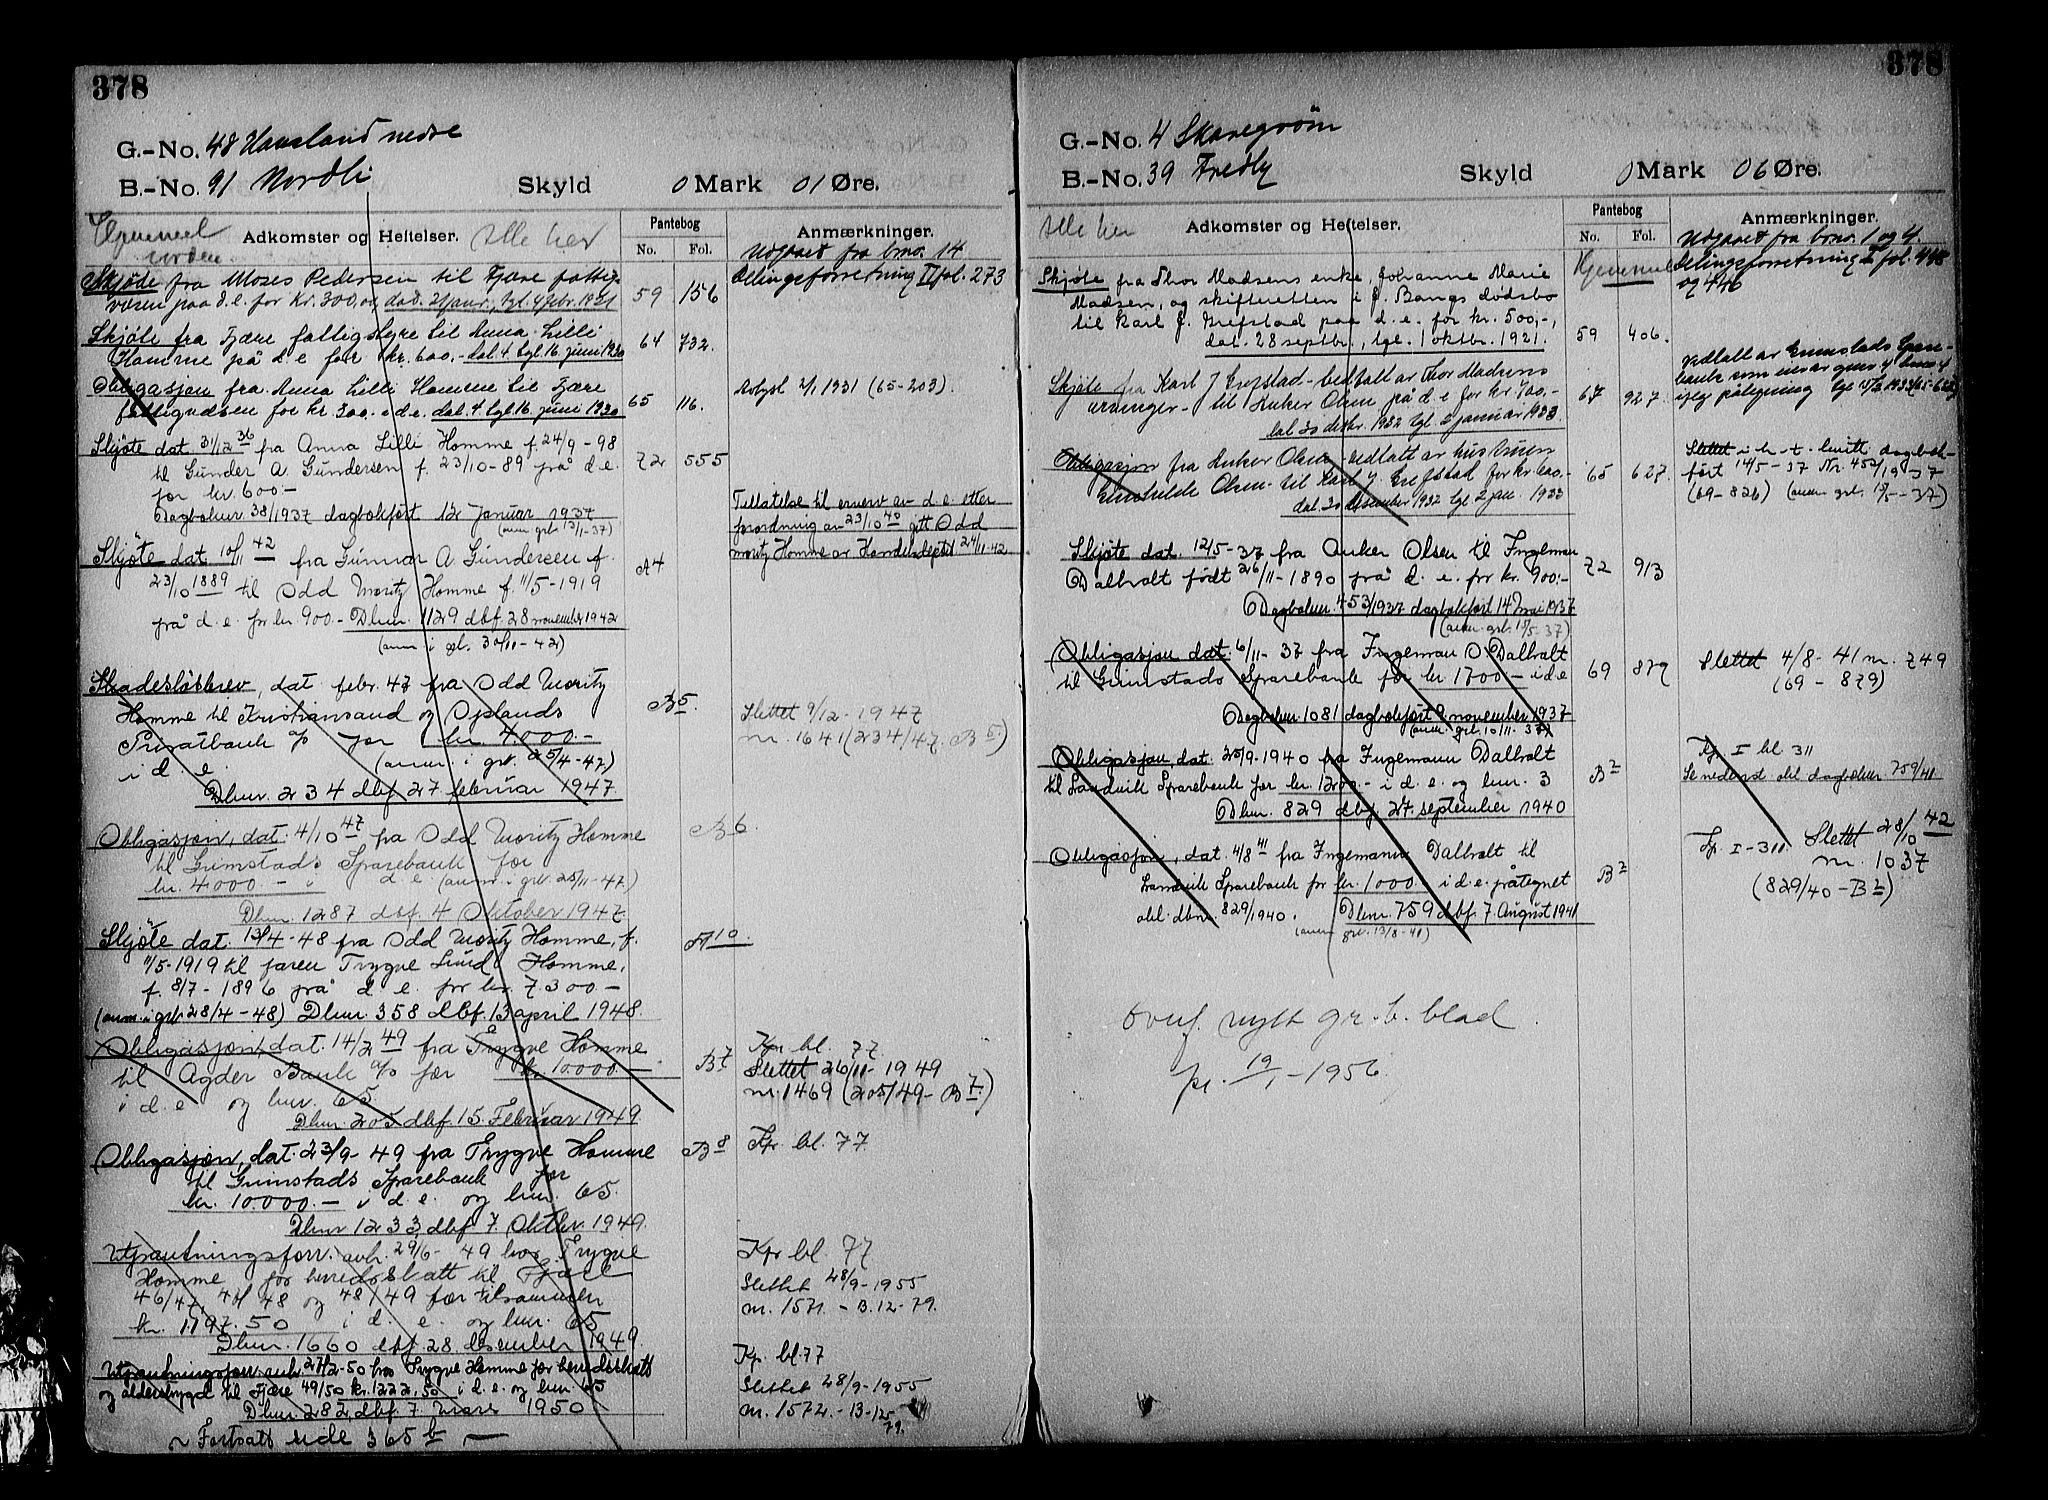 378
G.-No. 48 Haaeland nedre
B.-No. 91 Nordli Skyld 0 Mark 01 Øre.
Hjemmel
Adkomster og Heftelser. Alle her
Pantebog
No. Fol.
Anmærkninger.
Udgaaet fra bno. 14
Delingsforretning II fol. 273
Skjøde fra Moses Pedersen til Fjære fattig-
væsen paa d. e. for kr. 300, 59 156
Skjøte fra Fjære fattigstyre til Anna Lilli
Homme på d e for kr. 600.- dat. 4 tgl. 16. juni 1930 64 732.
Obligasjon fra Anna Lilli Homme til Fjære
fattigvæsen for kr. 300.- i d.e. dat. 4 tgl. 16. juni 1930 65 116. Avlyst 2/1 1931 (65-203).
Skjøte dat 31/12 36 fra Anna Lilli Homme f. 24/9-98
til Gunder A. Gundersen f. 23/10-89 på d.e. 72 555
for kr. 600.-
Dagboknr 38/1937 dagbokført 12 Januar 1937
(anm grb 13/1-37)
Tillatelse til erverv av d. e. etter
forordning av 23/10 40 gitt Odd
Moritz Homme av Handelsdept 24/11-42
Skjøte dat 10/11 42 fra Gunnar A Gundersen f.
23/10 1889 til Odd Moritz Homme f. 11/5-1919 A4
på d. e. for kr 900.- Dbnr. 1129 dbf. 28 november 1942
(anm i grb. 30/11-42)
Skadesløsbrev, dat febr. 47 fra Odd Moritz
Homme til Kristiansand og Oplands B5.
Privatbank a/s for kr. 4.000.-
i d. e. (anm. i grb. 25/4-47)
Dbnr. 234 dbf 27 februar 1947.
Slettet 9/12-1947
nr. 1641 (234/47. B5)
Obligasjon, dat. 4/10 47 fra Odd Moritz Homme B6
til Grimstads Sparebank for
kr. 4000.- i d. e. (anm. i grb. 25/11-47)
Dbnr. 1287 dbf. 4 Oktober 1947.
Skjøte dat. 13/4-48 fra Odd Moritz Homme, f. A10
11/5-1919 til faren Trygve Lund Homme,
f. 8/7-1896 på d. e. for kr. 7.300.-
(anm. i grb 28/4-48) Dbnr. 358 dbf. 13 april 1948.
Obligasjon, dat. 14/2 49 fra Trygve Homme
til Agder Bank a/s for kr 10.000.- B7
i d. e og bnr. 65.
Dbnr. 205 dbf. 15. Februar 1949.
Kfr bl. 77
Slettet 26/11-1949
nr. 1469 (205/49-B7)
Obligasjon, dat. 23/9-49 fra Trygve Homme B8 Kfr bl. 77
til Grimstads Sparebank for
kr. 10.000.- i d. e. og bnr. 65.
Dbnr 1233 dbf. 7. Oktbr. 1949.
Utpantningsforr. avh. 29/6-49 hos Trygve
Homme for herredsskatt til Fjære
46/47, 47/48 og 48/49 for tilsammen
kr. 1197.50 i d. e. og bnr. 65
Dbnr. 1660 dbf. 28 desember 1949
Kfr bl 77
Slettet 28/9-1955
nr. 1571. - B.12-79.
Utpantningsforr. avh 27/2-50 hos Trygve Homme for herredsskatt
og alderstrygd til Fjære 49/50 kr. 1222,50 i d. e. og bnr. 65
Dbnr. 282 dbf 7. Mars 1950
Kfr. bl. 77
Slettet 28/9-1955
nr. 1572. - B-12-
79.
~ Fortsatt side 365 b ~
378
G.-No. 4 Skaregrøm
B.-No. 39 Fredly Skyld 0 Mark 06 Øre.
Alle her Adkomster og Heftelser.
Pantebog
No. Fol.
Anmærkninger.
Udgaaet fra bno. 1 og 4.
Delingsforretning II fol. 445
og 446
Hjemmel
Skjøte fra Thor Madsens enke, Johanne Marie
Madsen, og skifteretten i J. Bangs dødsbo
til Karl J. Erefstad paa d. e. for kr. 500,-,
dat. 28 septbr., tgl. 1 oktbr. 1921. 59 406.
Skjøte fra Karl J Erefstad - vedtatt av Thor Madsens
arvinger - til Anker Olsen på d e for kr. 400,- 67 927.
dat. 30 desbr. 1932 tgl. 2 januar 1933
Vedtatt av Grimstads Spare-
bank
ifølge påtegning tgl.
Obligasjon fra Anker Olsen - vedtatt av hustruen
Olsen - til Karl J. Erefstad for kr. 600.- 65 627.
dat. 30 desember 1932 tgl 2 jan 1933
Slettet i h. t. kvitt dagbok-
ført 14/5-37 Nr. 452/1937
(69-826) (anm. grb. 15/5-37)
Skjøte dat. 12/5-37 fra Anker Olsen til Ingeman
Dalholt født 26/11-1890 på d. e. for kr. 900.- 72 913
Dagboknr. 453/1937 dagbokført 14 Mai 1937
(anm. grb. 15/5-37)
Obligasjon dat. 6/11-37 fra Ingeman O Dalholt
til Grimstads Sparebank for kr 1700.- i d. e 69 879
Dagboknr. 1081 dagbokført 9 november 1937
(anm. grb. 10/11-37)
Slettet 4/8-41 nr. 749
(69-879)
Obligasjon, dat. 25/9-1940 fra Ingemann Dalholt
til Landvik Sparebank for kr. 1200.- i d. e. og bnr. 3 B2
Dbnr. 829 dbf 27. september 1940
Kfr. I bl 311
Se nedenst. obl dagboknr 759/41
Obligasjon, dat. 4/8 41 fra Ingemann Dalholt til
Landvik Sparebank for kr. 1000. i d. e. påtegnet B2
obl. dbnr. 829/1940. Dbnr. 759 dbf. 7. August 1941
(anm grb. 13/8-41)
Kfr. I-311. Slettet 28/10 42
nr. 1037
(829/40-B2)
Overf. nytt gr. b. blad.
pr. 19/1-1956.